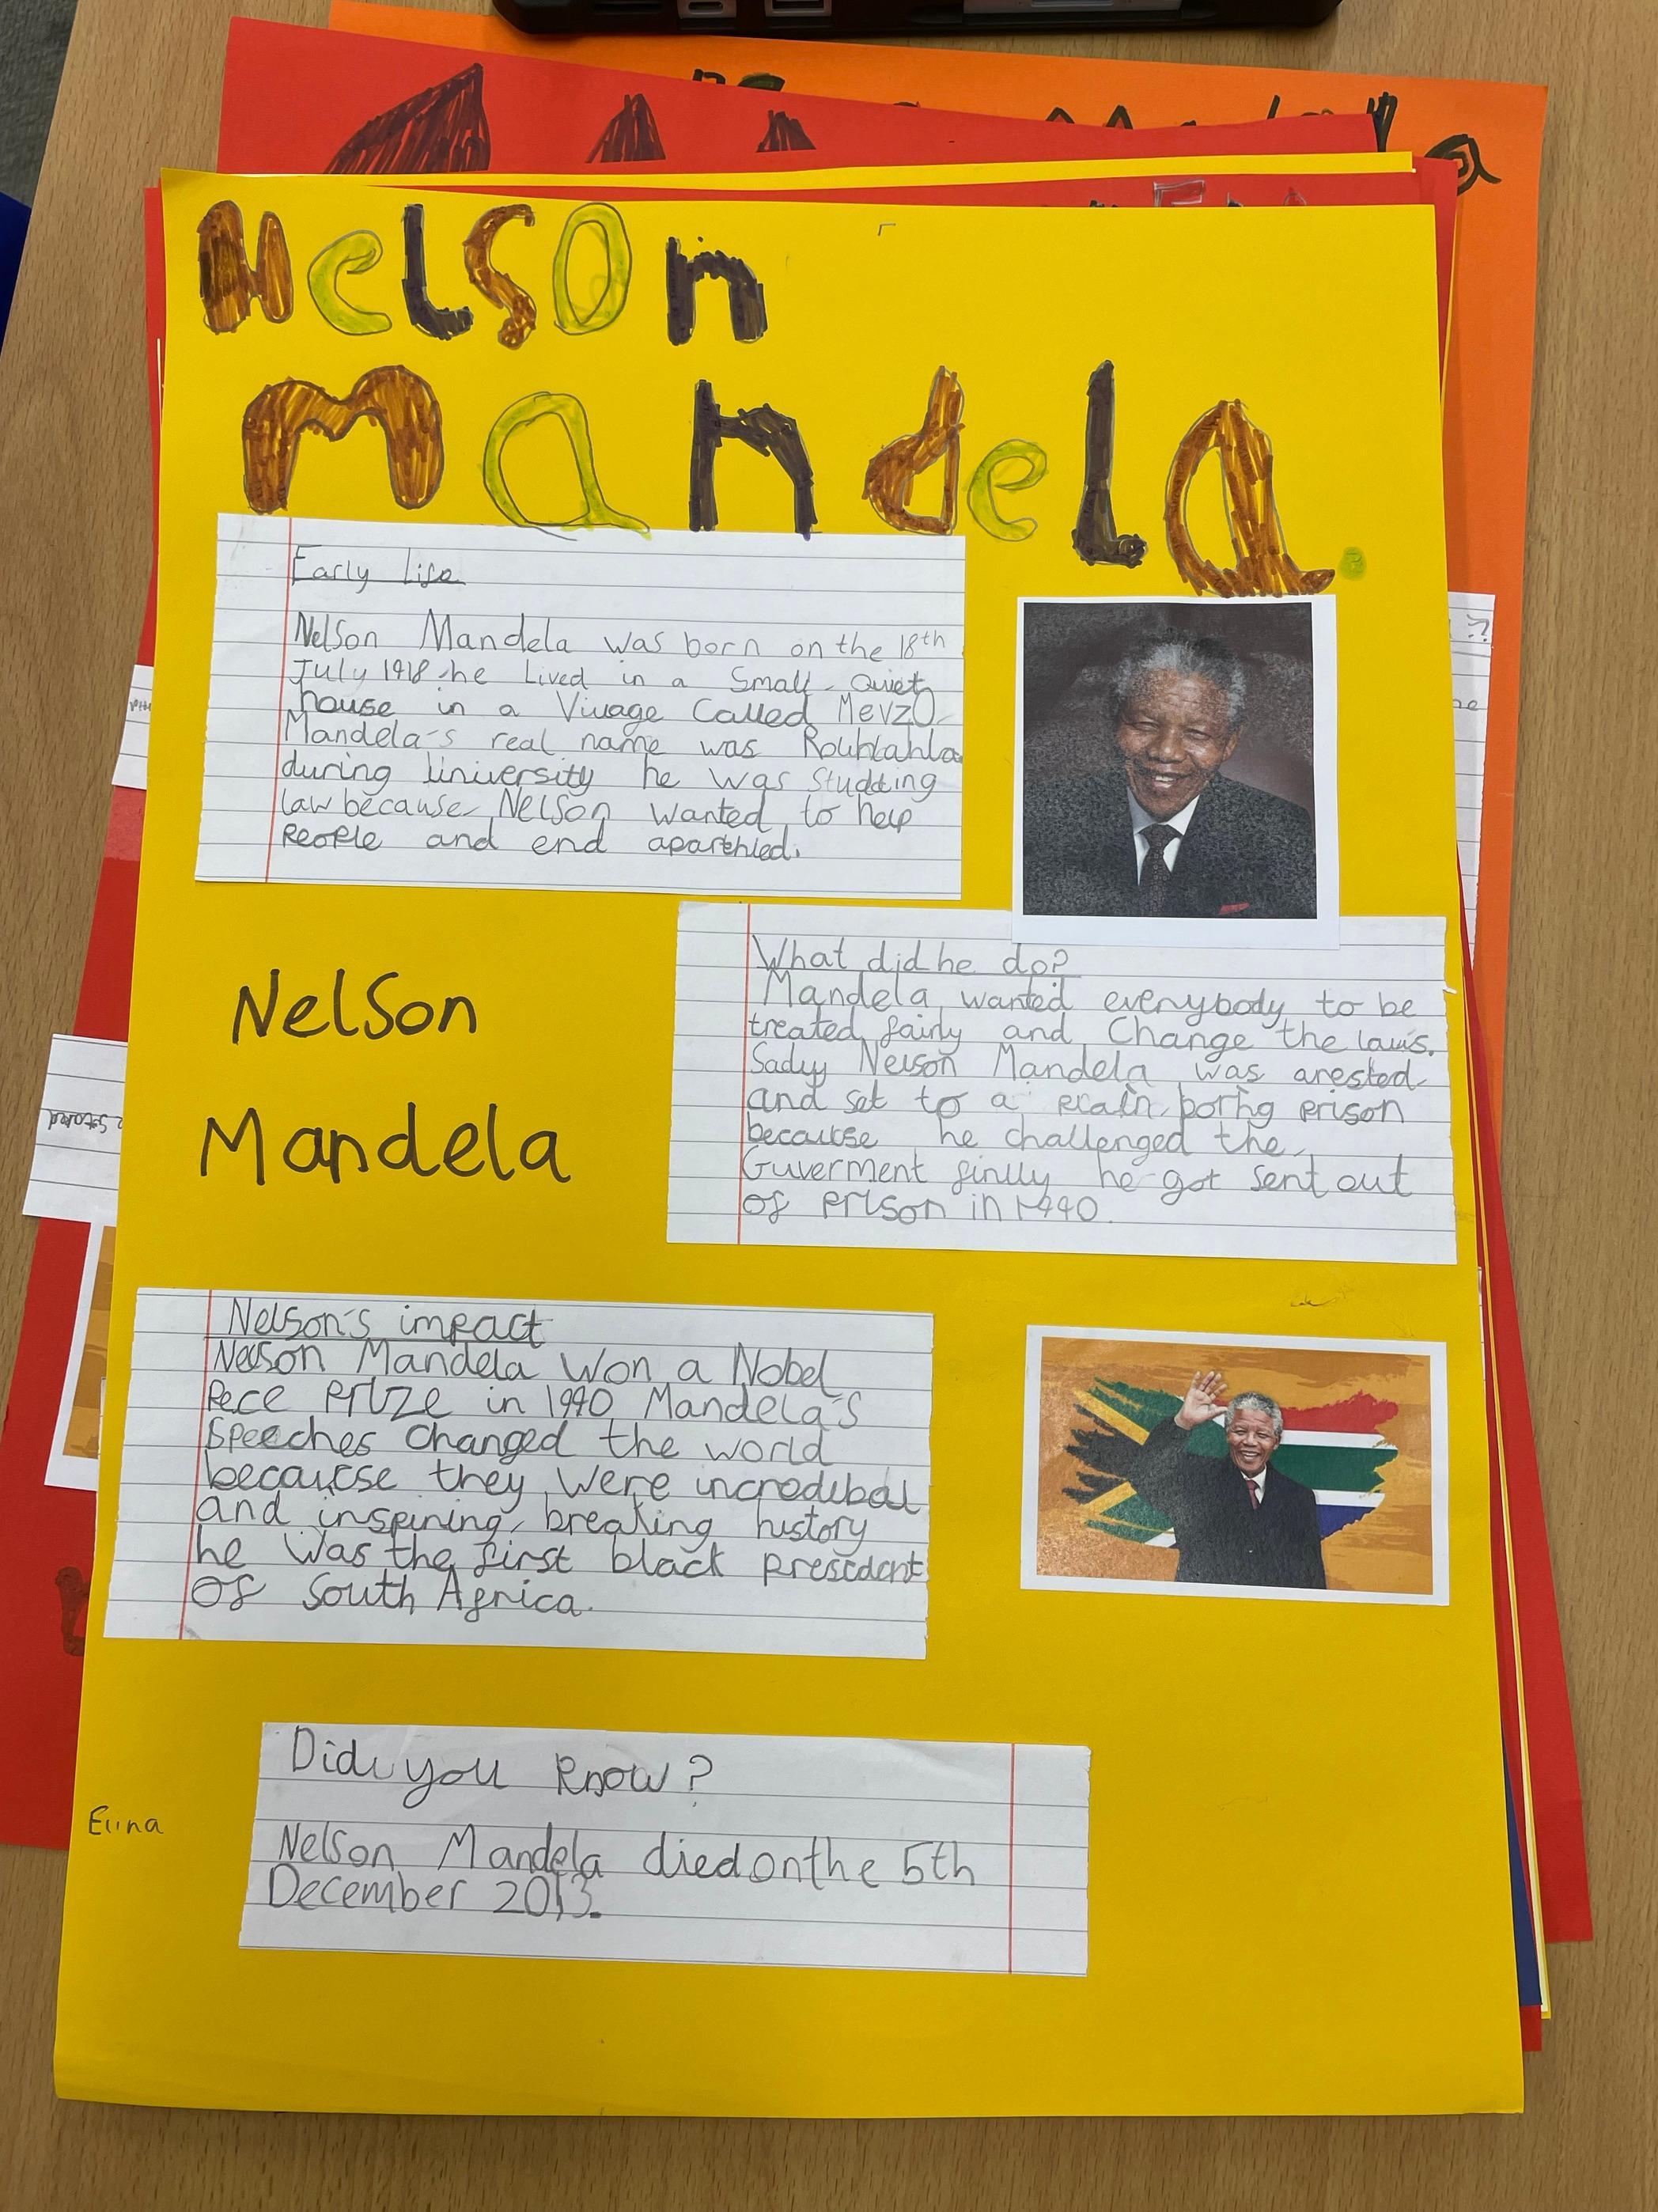 Nelson
Mandela.
Early Life
Nelson Mandela was born on the 18th
July 1918 he Lived in a Small Quiet
house in a Vivage Called MevzO
Mandela's real name was Rolihlahla
during University he was studding
law because Nelson wanted to help
People and end aparthied.
What did he do?
Mandela wanted everybody to be
treated fairly and Change the laws.
Sadly Nelson Mandela was arested
and set to a prison
because he challenged the
Guverment finlly he got sent out
of prison in 1990.
Nelson
Mandela
Nelson's impact
Nelson Mandela won a Nobel
Pece Prize in 1990 Mandela's
Speeches Changed the world
because they were incredibal
and inspining, breaking history
he was the first black president
of South Africa.
Did you know?
Nelson Mandela died on the 5th
December 2013.